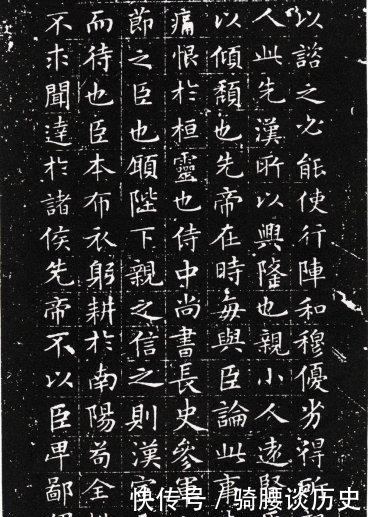 以諮之必能使行陣和穆優劣得所
人此先漢所以興隆也親小人遠賢
以傾頹也先帝在時每與臣論此事
痛恨於桓靈也侍中尚書長史參軍
節之臣也願陛下親之信之則漢室
而待也臣本布衣躬耕於南陽苟全
不求聞達於諸侯先帝不以臣卑鄙
快传号 / 骑腰谈历史